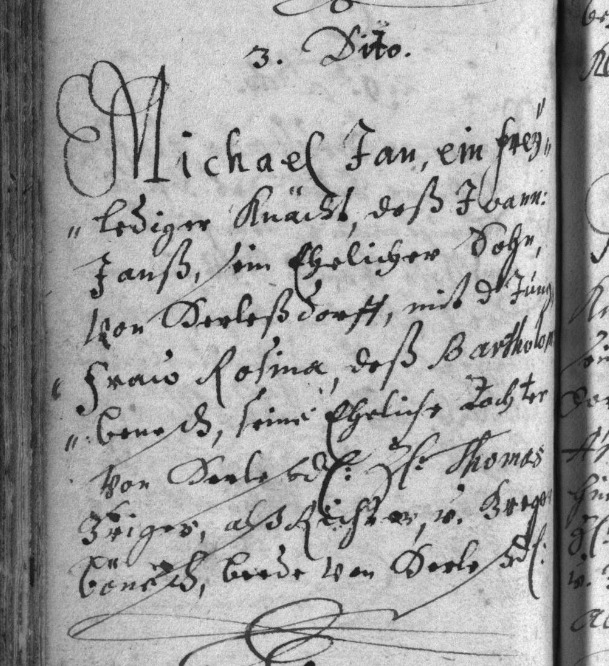 3. Dito.
Michael Jan, ein frey„
„ lediger Knächt, deß Joann:
Janß, sein Ehelicher Sohn,
von Kerleßdorff, mit d Jung
fraw Rosina, deß Bartholom
„ seine Eheliche Tochter
von Kerlesd: Thomas
Kriger, alß Richter, v. Greger
beede von Kerlesd: